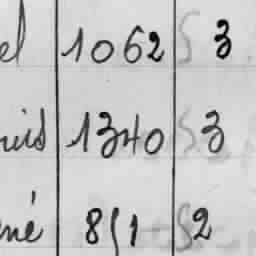 el 1062 S 3
uis 1340 S 3
né 851 S 2